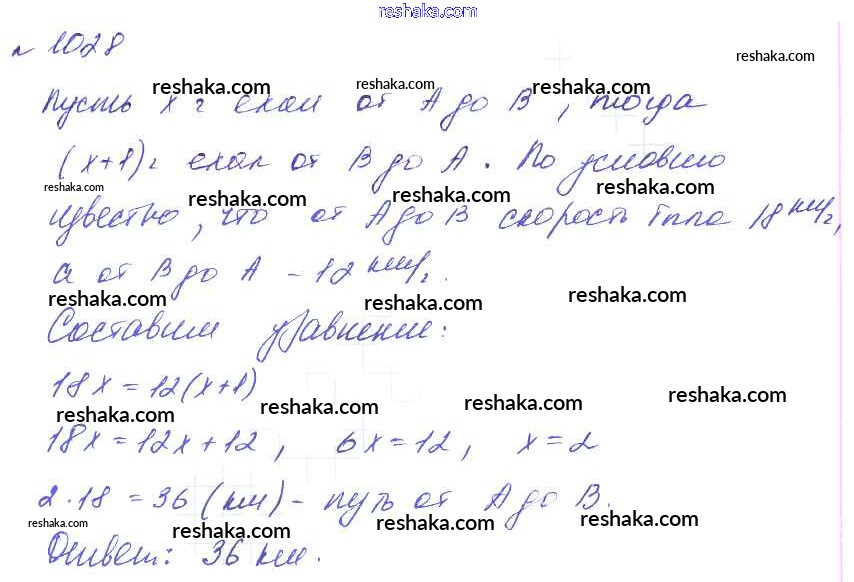 reshaka.com
№ 1028
reshaka.com
reshaka.com reshaka.com reshaka.com
Пусть x г ехал от А до В, тогда
(x+1)г ехал от В до А. По условию
reshaka.com reshaka.com reshaka.com reshaka.com
известно, что от А до В скорость была 18 км/г,
а от В до А - 12 км/г.
reshaka.com reshaka.com reshaka.com
Составим уравнение:
18x = 12(x+1)
reshaka.com reshaka.com reshaka.com reshaka.com
18x = 12x + 12, 6x = 12, x = 2
2·18 = 36 (км) - путь от А до В.
reshaka.com reshaka.com reshaka.com reshaka.com
Ответ: 36 км.